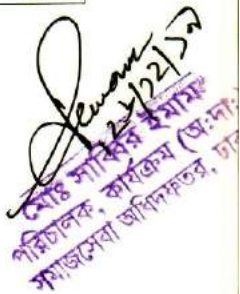 ২৮/১২/১৭
মোঃ সাব্বির ইমাম
পরিচালক, কার্যক্রম (অ:দা:)
সমাজসেবা অধিদফতর,